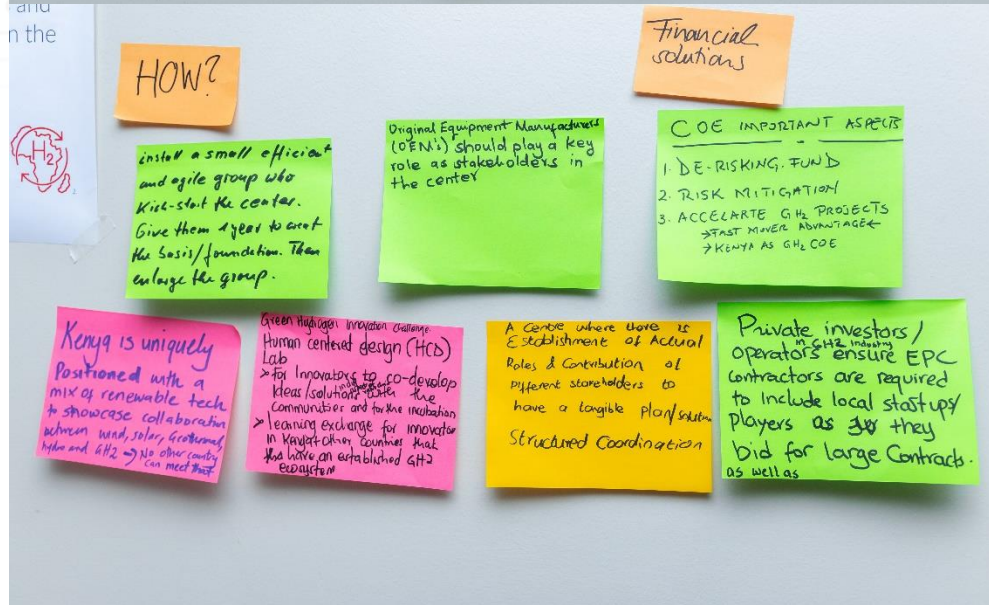 and
n the
H2
HOW?
Financial
solutions
install a small efficient
and agile group who
Kick-start the center.
Give them 1 year to creat
the basis/foundation. Then
enlarge the group.
Original Equipment Manufacturers
(OEM's) should play a key
role as stakeholders in
the center
COE IMPORTANT ASPECTS
1. DE-RISKING FUND
2. RISK MITIGATION
3. ACCELARTE GH2 PROJECTS
→FAST MOVER ADVANTAGE←
→KENYA AS GH2 COE
Kenya is uniquely
Positioned with a
mix of renewable tech
to showcase collaboration
between wind, solar, Geothermal,
hydro and GH2 → No other country
can meet that
Green Hydrogen Innovation Challenge.
Human centered design (HCD)
Lab
> for Innovators to co-develop
Ideas/solutions with the
Communities and for the incubation
> learning exchange for innovator
in Kenya + other Countries that
have an established GH2
ecosystem
A Centre where there is
Establishment of Actual
Roles & Contribution of
Different stakeholders to
have a tangible plan/solution
Structured Coordination
Private investors/
in GH2 industry
operators ensure EPC
contractors are required
to include local startups/
players as they
bid for large Contracts.
as well as